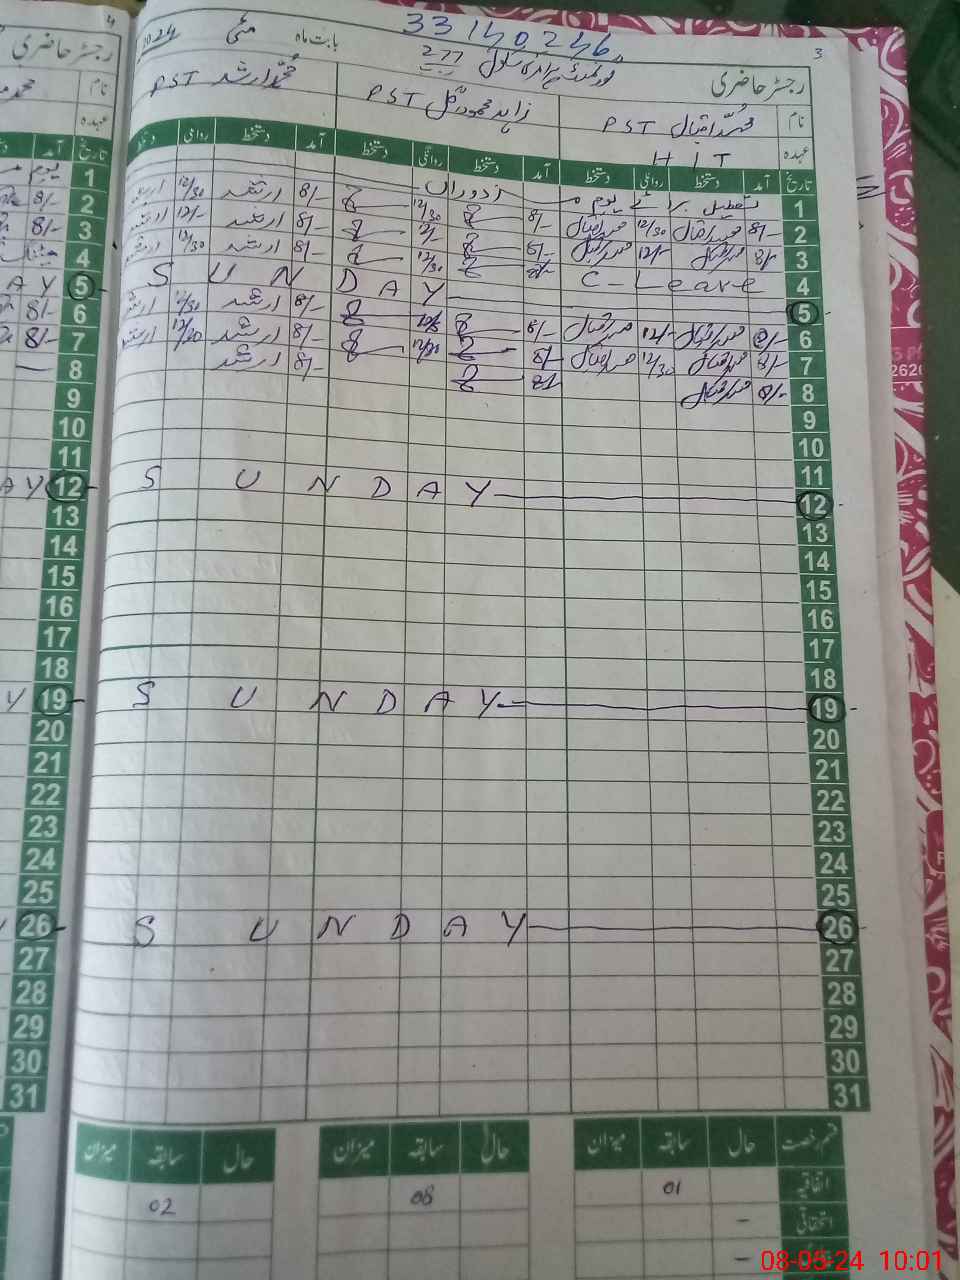 3
33140246
رجسٹر حاضری
بابت ماہ مئی 2024
نام محمد اقبال PST زاہد محمود گل PST محمد ارشد PST
عہدہ H I T
تاریخ آمد دستخط روانگی دستخط آمد دستخط روانگی دستخط آمد دستخط روانگی دستخط
1 تعطیل برائے یوم مزدوراں
2 8/- محمد اقبال 12/30 محمد اقبال 8/- 12/30 8/- ارشد 12/30 ارشد
3 8/- محمد اقبال 12/- محمد اقبال 8/- 12/- 8/- ارشد 12/- ارشد
4 C- Leave 8/- 12/30 8/- ارشد 12/30 ارشد
5 S U N D A Y
6 8/- محمد اقبال 12/- محمد اقبال 8/- 8/- ارشد 12/30 ارشد
7 8/- محمد اقبال 12/30 محمد اقبال 8/- 12/30 8/- ارشد 12/30 ارشد
8 8/- محمد اقبال 8/- 8/- ارشد
9
10
11
12 S U N D A Y
13
14
15
16
17
18
19 S U N D A Y
20
21
22
23
24
25
26 S U N D A Y
27
28
29
30
31
قسم رخصت حال سابقہ میزان حال سابقہ میزان حال سابقہ میزان
اتفاقیہ 01 08 02
استحقاقی -
08-05-24 10:01
4
رجسٹر حاضری
نام
عہدہ
تاریخ آمد
1
2 8/-
3 8/-
4 8/-
5 A Y
6 8/-
7 8/-
8
9
10
11
12 A Y
13
14
15
16
17
18
19 Y
20
21
22
23
24
25
26
27
28
29
30
31